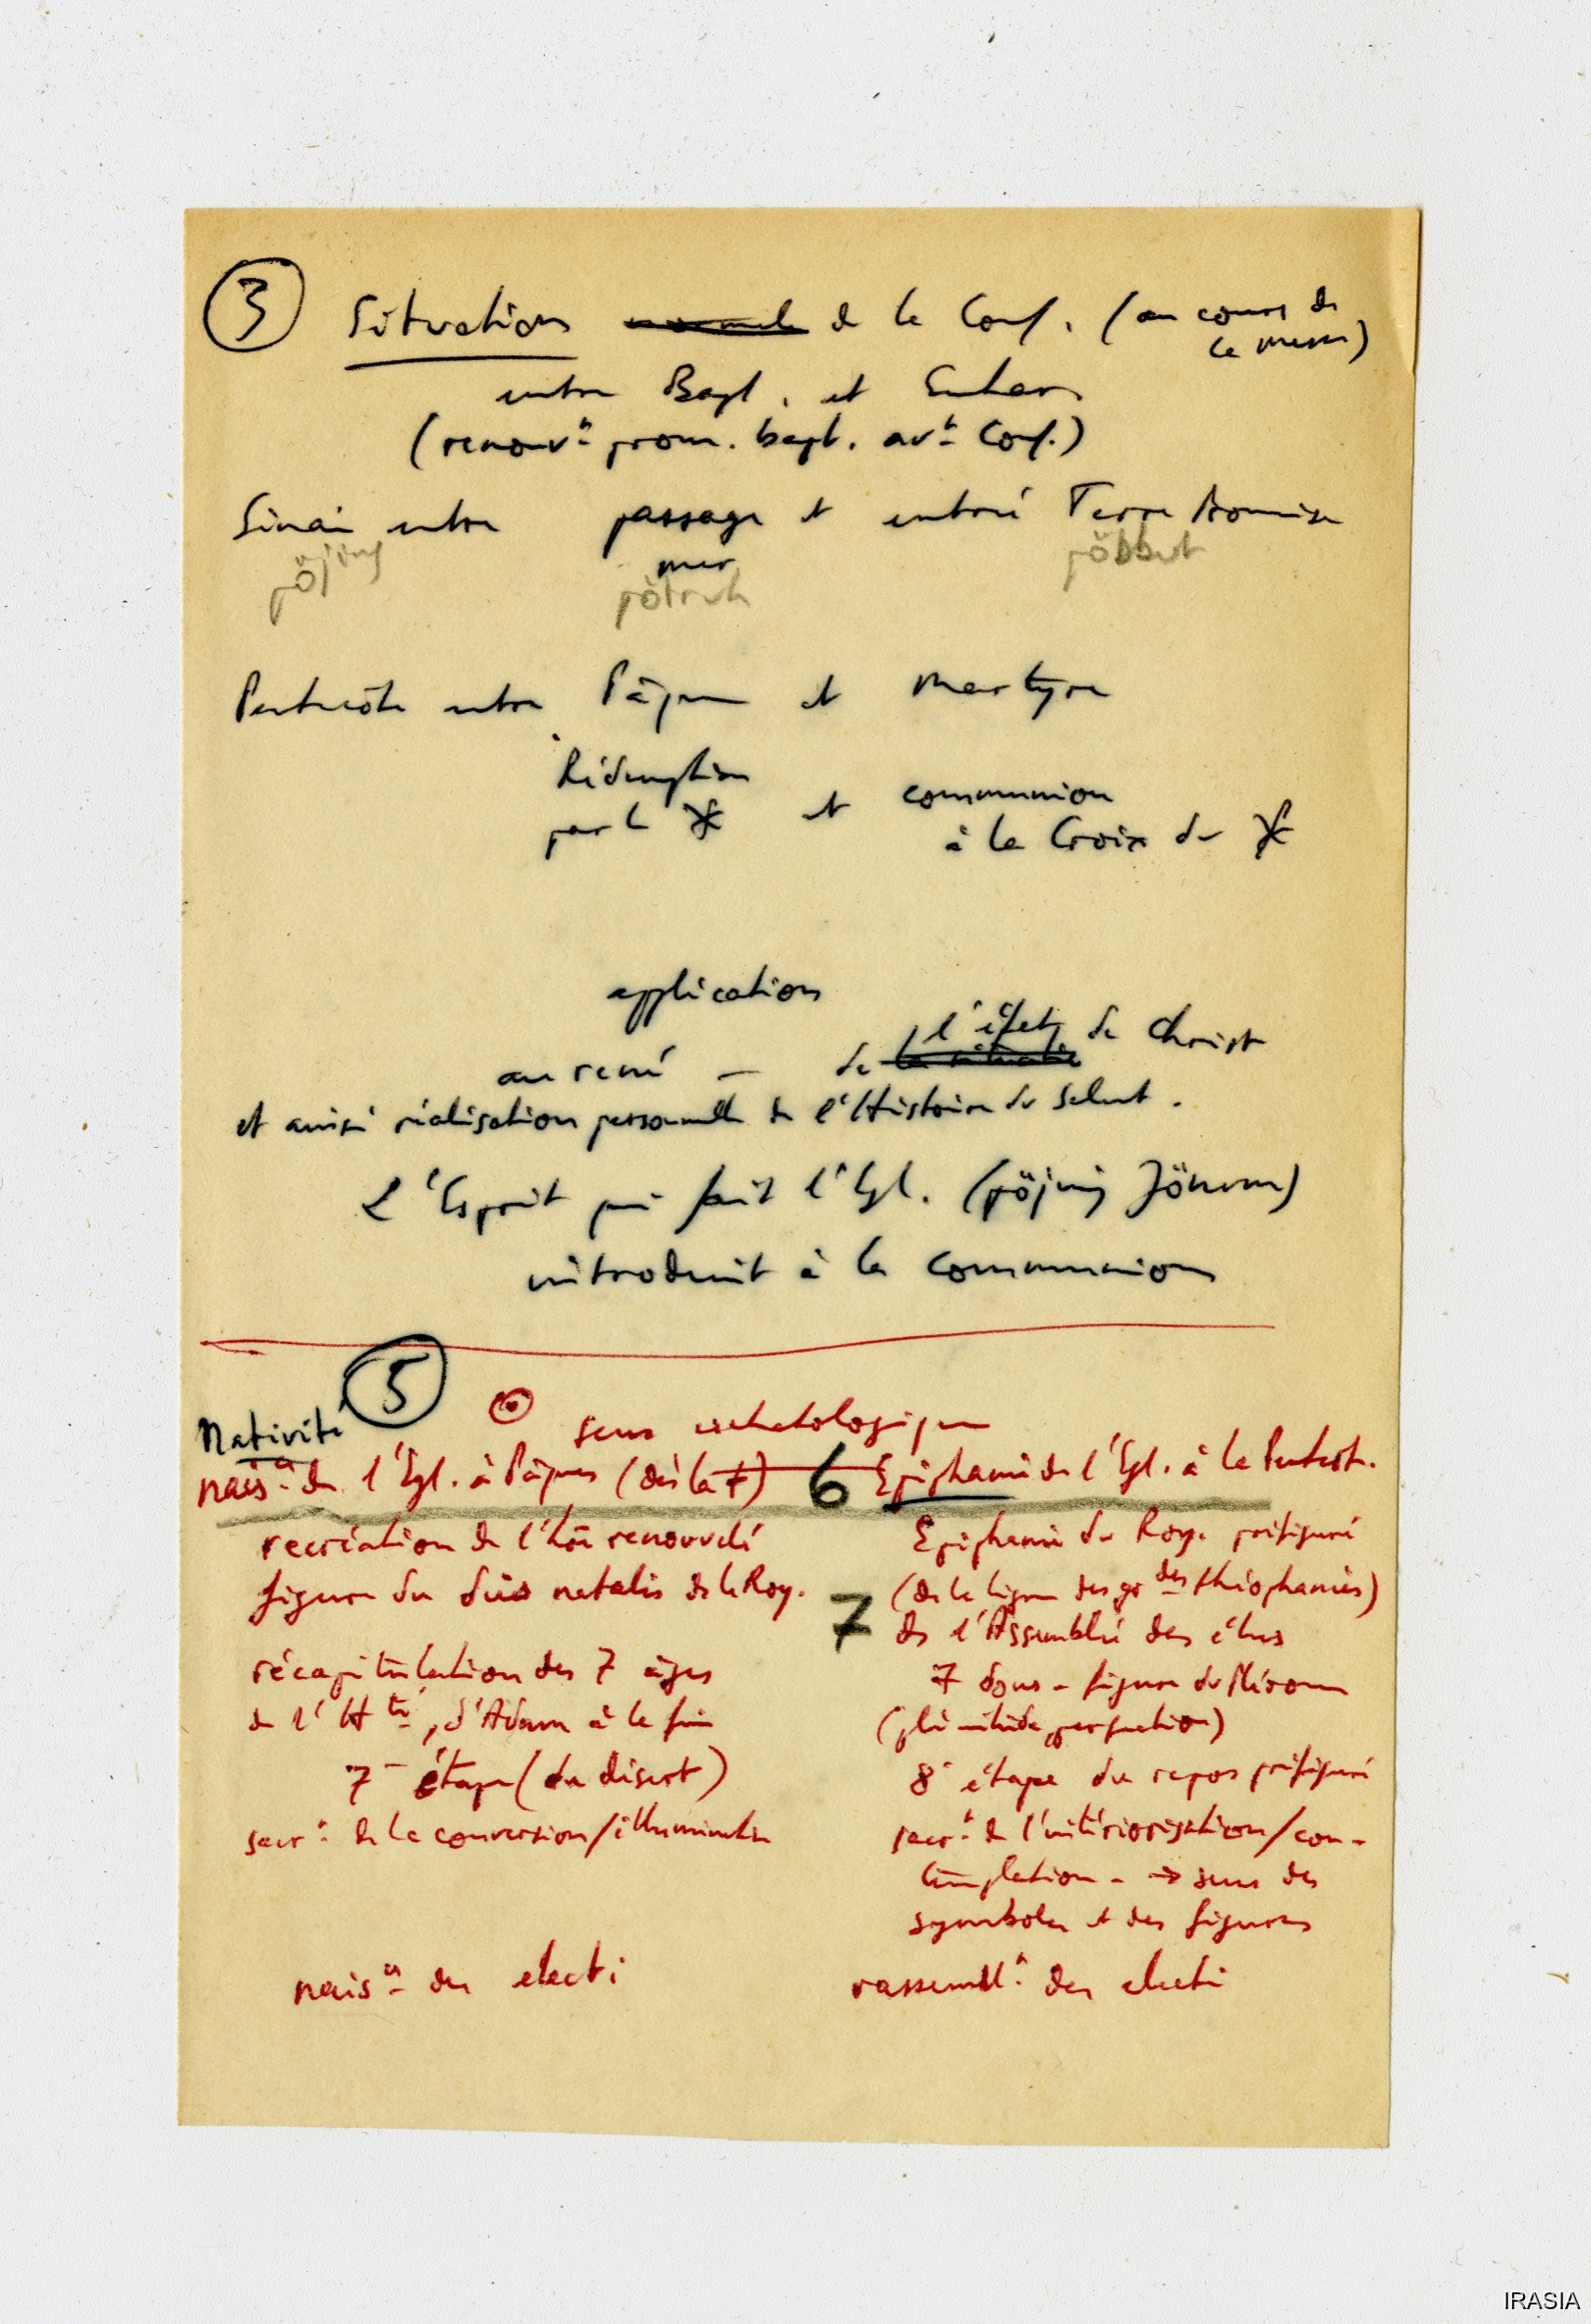 ③ Situation normale de la Conf. (au cours de
la messe)
entre Bapt. et Euchar.
(renouvt prom. bapt. avt Conf.)
Sinaï entre passage et entrée Terre Promise
pöjing mer pöbbut
pötruh
Pentecôte entre Pâques et Martyre
Rédemption
par le X et communion
à la Croix du X
application
l'effet de Christ
au rené — de la situation
et ainsi réalisation personnelle de l'Histoire du Salut.
L'Esprit qui fait l'Egl. (pöjing Jönum)
introduit à la communion
⑤
Nativité sens eschatologique
naisce de l'Egl. à Pâques (dès la +) 6 Epiphanie de l'Egl. à la Pentecôt.
recréation de l'ho renouvelé
figure du dies natalis de le Roy.
récapitulation des 7 âges
de l'Hre, d'Adam à la fin
7e étape (du désert)
sacrt de la conversion/illumination
naisce des electi
Epiphanie du Roy. préfiguré
7 (de la ligne des grdes théophanies)
de l'Assemblée des élus
7 dons - figure du Plérome
(plénitude, perfection)
8e étape du repos préfiguré
sacrt de l'intériorisation/con-
templation - → sens des
symboles et des figures
rassemblt des electi
IRASIA